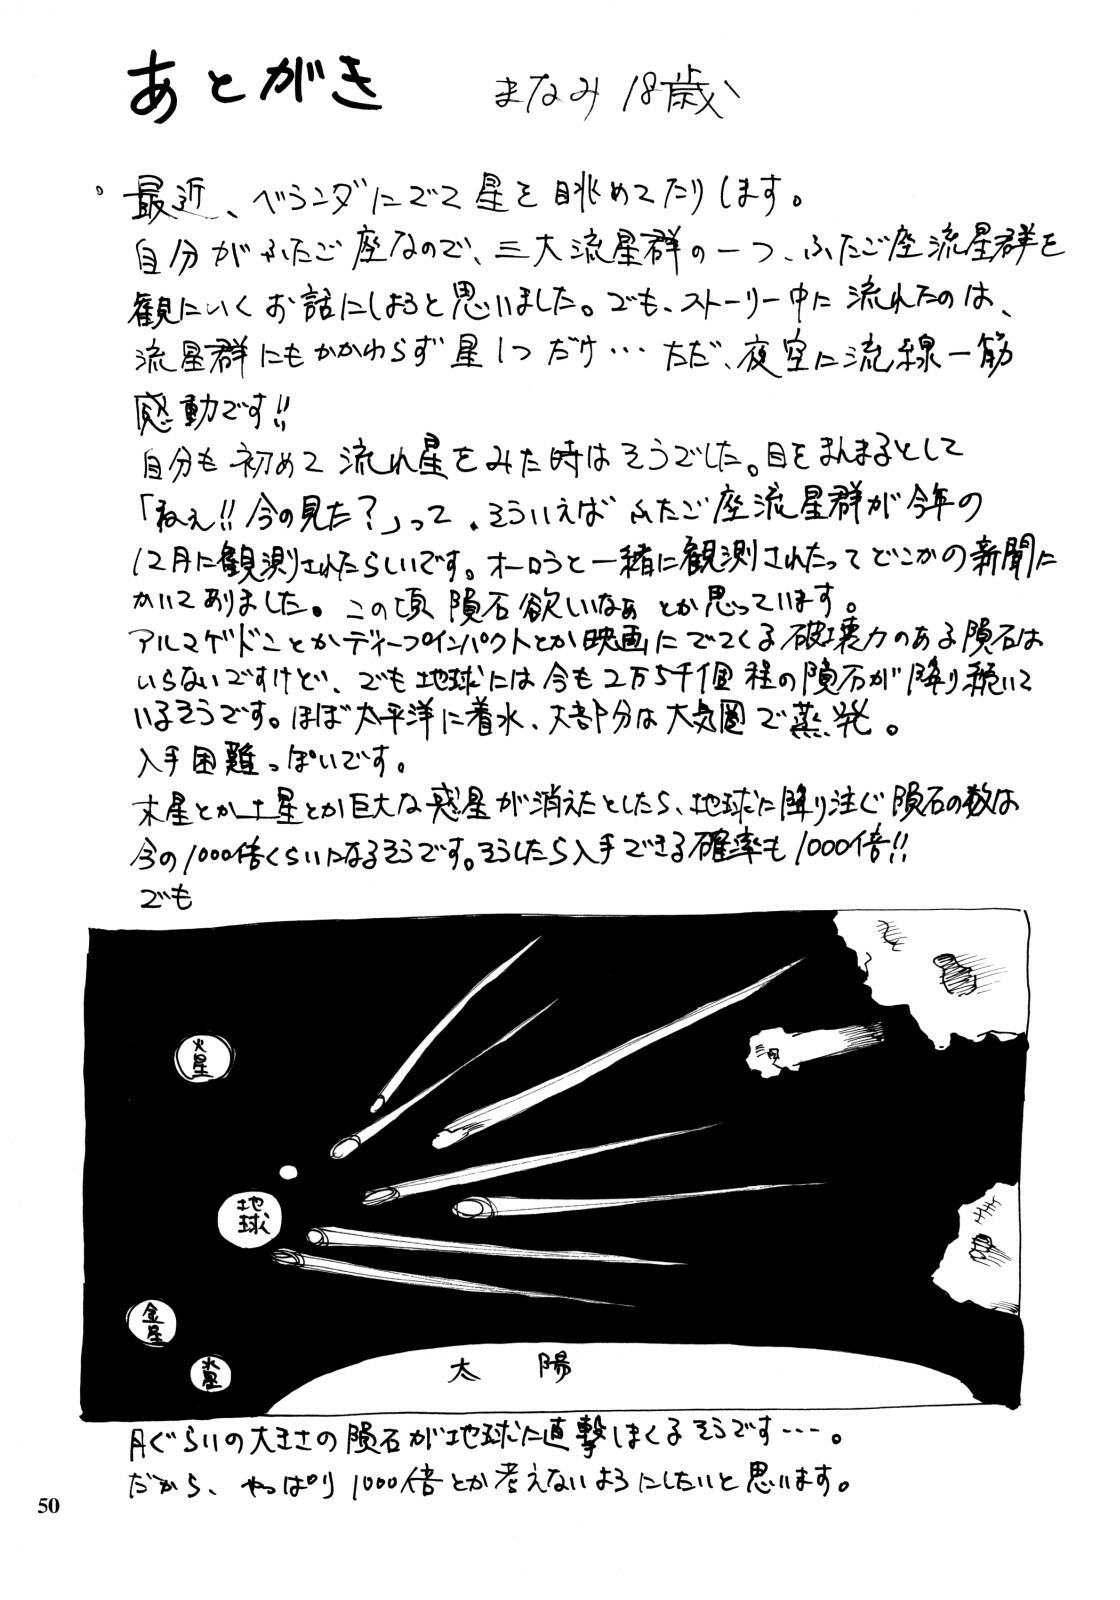 あとがき　まなみ 18歳
。最近、ベランダにでて星を眺めてたりします。
自分がふたご座なので、三大流星群の一つ、ふたご座流星群を
観にいくお話にしようと思いました。でも、ストーリー中に流れたのは、
流星群にもかかわらず星1つだけ… ただ、夜空に流線一筋
感動です!!
自分も初めて流れ星をみた時はそうでした。目をまんまるとして
「ねぇ!!今の見た?」って。そういえばふたご座流星群が今年の
12月に観測されたらしいです。オーロラと一緒に観測されたってどこかの新聞に
かいてありました。この頃隕石欲しいなぁとか思っています。
アルマゲドンとかディープインパクトとか映画にでてくる破壊力のある隕石は
いらないですけど、でも地球には今も2万5千個程の隕石が降り続いて
いるそうです。ほぼ太平洋に着水、大部分は大気圏で蒸発。
入手困難っぽいです。
木星とか土星とか巨大な惑星が消えたとしたら、地球に降り注ぐ隕石の数は
今の1000倍くらいになるそうです。そうしたら入手できる確率も1000倍!!
でも
火星
地球
金星
水星
太陽
月ぐらいの大きさの隕石が地球に直撃しまくるそうです…。
だから、やっぱり1000倍とか考えないようにしたいと思います。
50